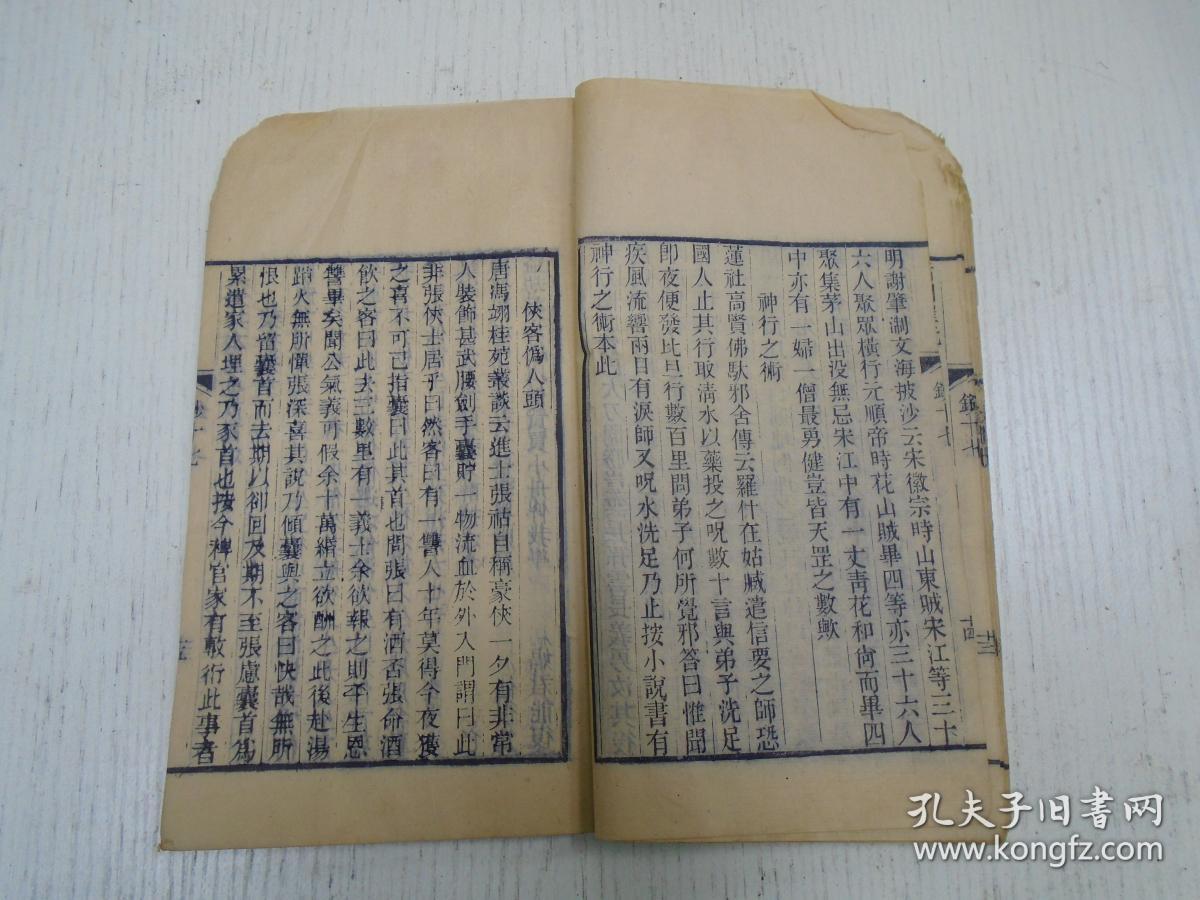 明謝肇淛文海披沙云宋徽宗時山東賊宋江等三十
六人聚眾橫行元順帝時花山賊畢四等亦三十六人
聚集茅山出没無忌宋江中有一丈靑花和尙而畢四
中亦有一婦一僧最勇健豈皆天罡之數歟
神行之術
蓮社高賢佛馱邪舍傳云羅什在姑臧遣信要之師恐
國人止其行取淸水以藥投之呪數十言與弟子洗足
卽夜便發比旦行數百里問弟子何所覺邪答曰惟聞
疾風流響兩目有淚師又呪水洗足乃止按小說書有
神行之術本此
俠客僞人頭
唐馮翊桂苑叢談云進士張祜自稱豪俠一夕有非常
人裝飾甚武腰劍手囊貯一物流血於外入門謂曰此
非張俠士居乎曰然客曰有一讐人十年莫得今夜獲
之喜不可已指囊曰此其首也問張曰有酒否張命酒
飮之客曰此去三數里有一義士余欲報之則平生恩
讐畢矣聞公氣義可假余十萬緡立欲酬之此後赴湯
蹈火無所憚張深喜其說乃傾囊與之客曰快哉無所
恨也乃留囊首而去期以卻回及期不至張慮囊首爲
累遣家人埋之乃豕首也按今稗官家有敷衍此事者
孔夫子旧书网
www.kongfz.com